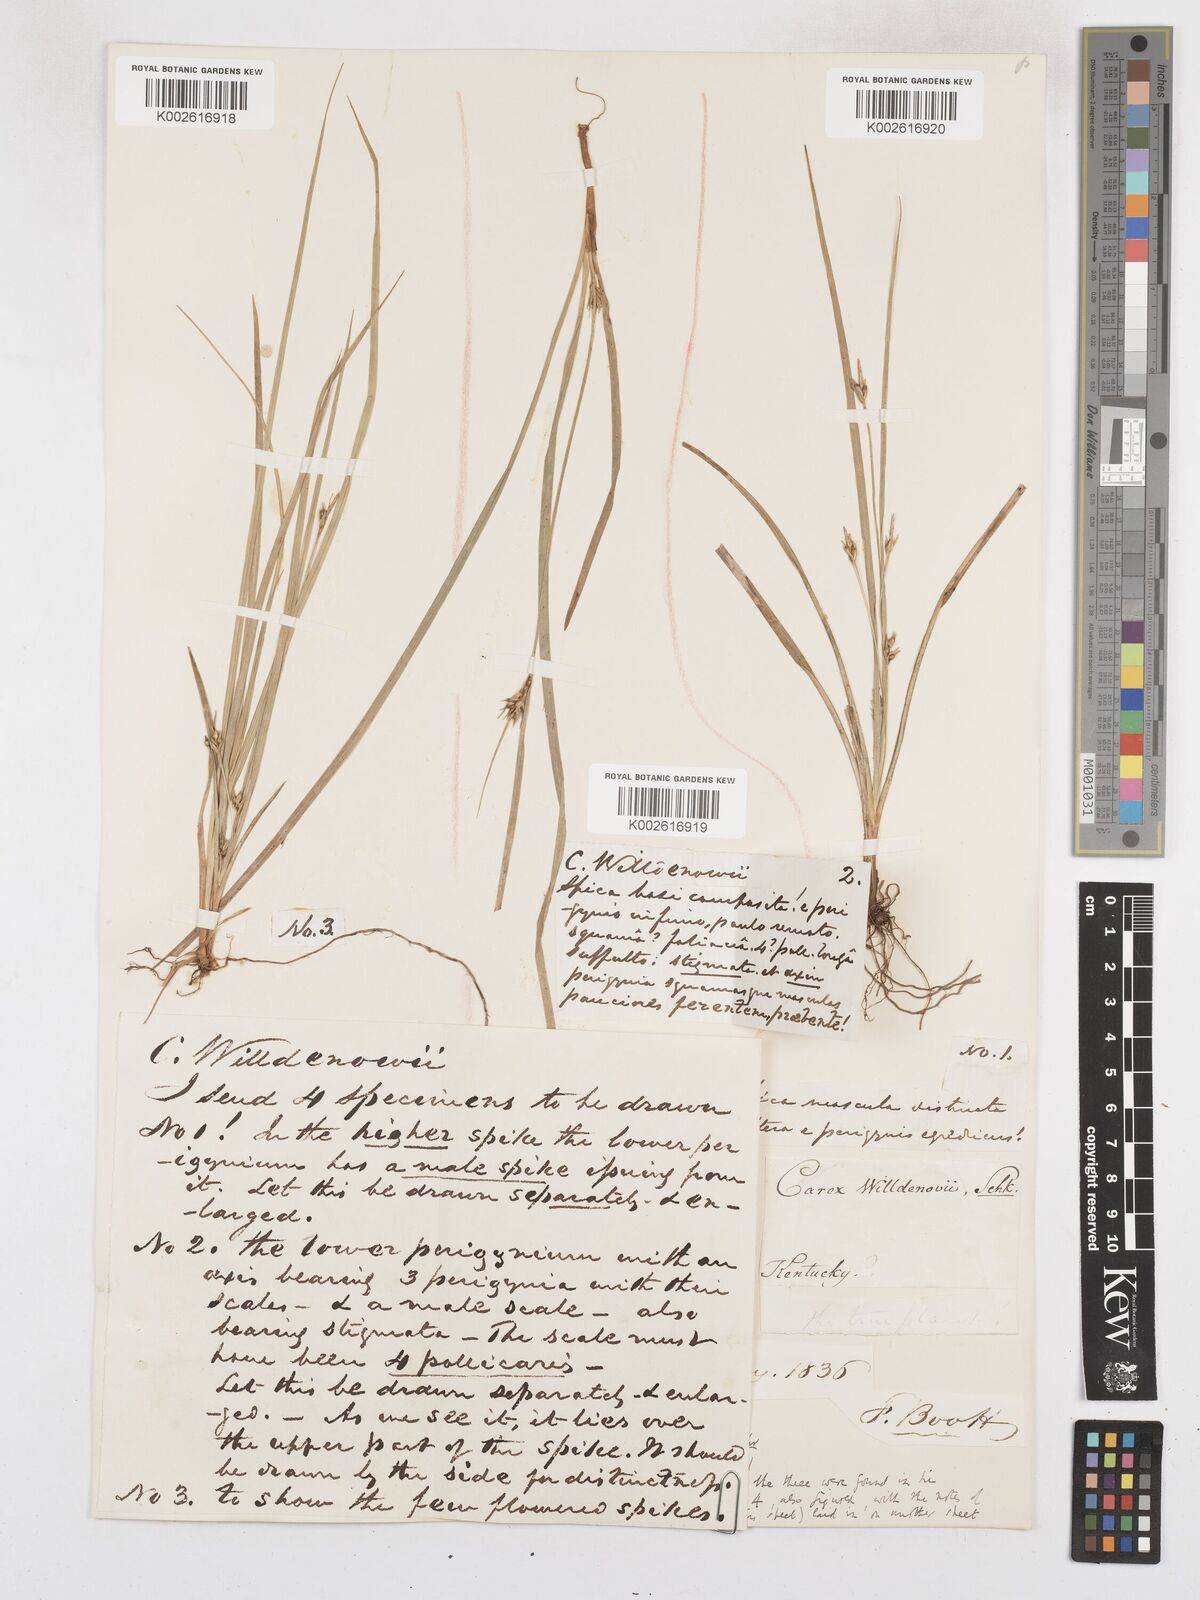 ROYAL BOTANIC GARDENS KEW
K002616918
ROYAL BOTANIC GARDENS KEW
K002616920
ROYAL BOTANIC GARDENS KEW
K002616919
C. Willdenowii 2.
Spica basi composita! e peri
-gynio infimo, paulo remoto.
squamâ? foliaciâ. 4? poll. longâ
suffulto: stigmata et axin
perigynia squamasque masculas
pauciores ferentem, præbente!
No. 3.
No. 1.
mascula distincta
e perigyniis egrediens!
Carex Willdenovii, Schk.
Kentucky.?
1836
F. Boott
C. Willdenowii
I send 4 specimens to be drawn
No 1! In the higher spike the lower per
-igynium has a male spike issuing from
it. Let this be drawn separately & en-
-larged.
No 2. the lower perigynium with an
axis bearing 3 perigynia with their
scales - & a male scale - also
bearing stigmata - The scale must
have been 4 pollicaris -
Let this be drawn separately & enlar-
-ged. - As we see it, it lies over
the upper part of the spike. It should
be drawn by the side for distinctness.
No 3. to show the few flowered spikes.
the three were found in his
4, also figured, with the notes of
sheet) laid in on another sheet
inches
centimeters
Density
Don Williams
M001031
cm
0 1 2 3 4 5 6 7 8 9 10
Kew
Royal Botanic Gardens